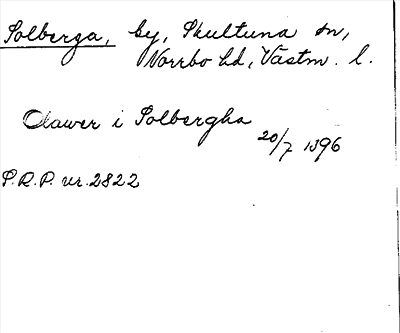 Solberga, by, Skultuna sn,
Norrbo hd, Västm. l.
Olawer i Solbergha
20/7 1396
S.R.P. nr. 2822